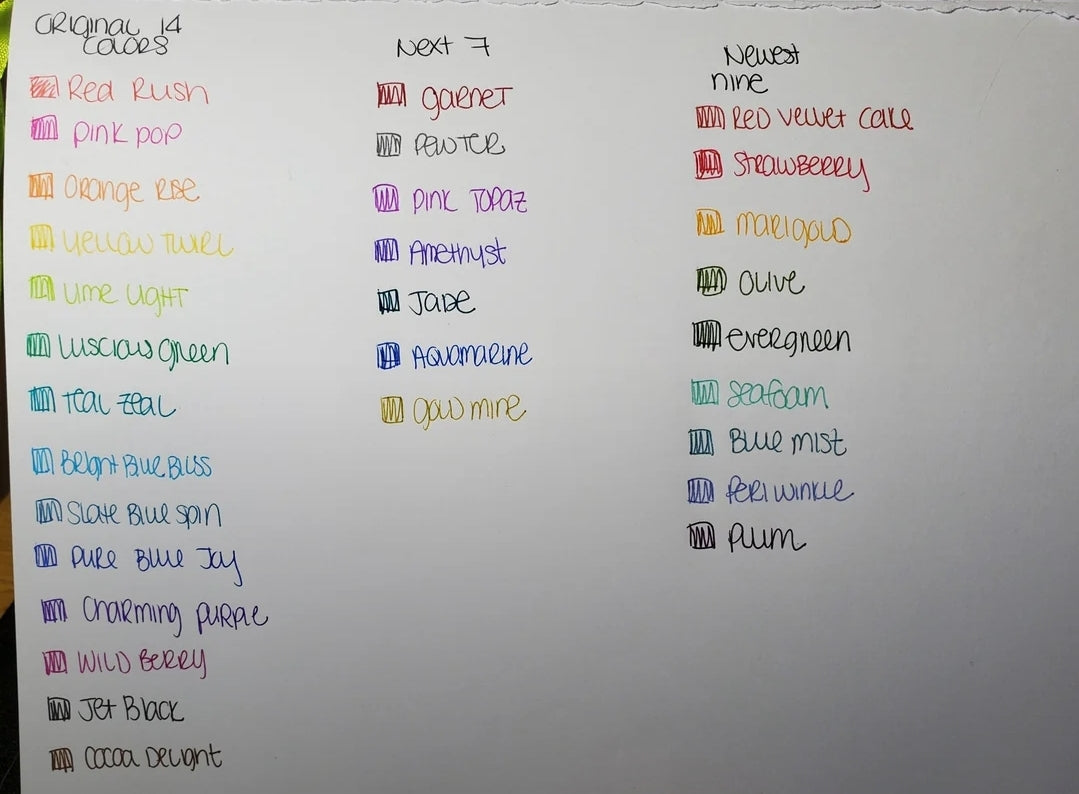 ORIGINAL 14
COLORS
Red Rush
Pink Pop
Orange Rise
Yellow Twirl
Lime Light
Luscious Green
Teal Zeal
Bright Blue Bliss
Slate Blue Spin
Pure Blue Joy
Charming Purple
Wild Berry
Jet Black
Cocoa Delight
Next 7
Garnet
Pewter
Pink Topaz
Amethyst
Jade
Aquamarine
Gold mine
Newest
nine
Red Velvet Cake
Strawberry
Marigold
Olive
Evergreen
Seafoam
Blue Mist
Periwinkle
Plum